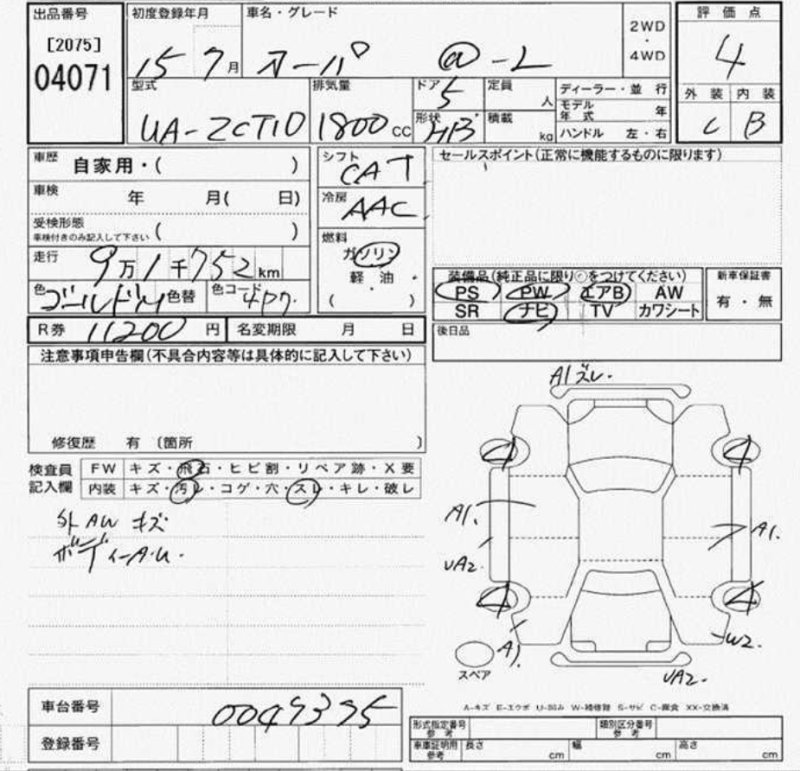 出品番号 初度登録年月 車名・グレード 2WD・4WD 評価点
[2075] 04071 15 7月 オーパ @-L 4
型式 排気量 ドア 5 定員 人 ディーラー・並行 外装 内装
UA-ZCT10 1800 CC 形状 HB 積載 kg モデル年式 年 C B
ハンドル 左・右
車歴 自家用・( ) シフト CAT セールスポイント(正常に機能するものに限ります)
車検 年 月( 日) 冷房 AAC
受検形態 ( )
車検付きのみ記入して下さい
燃料 ガソリン
走行 9万1千752km 軽・油
装備品(純正品に限り○をつけてください) 新車保証書
色 ゴールドM 色替 色コード ・ ( )
PS PW エアB AW 有・無
SR ナビ TV カワシート
R券 11200円 名変期限 月 日 後日品
注意事項申告欄(不具合内容等は具体的に記入して下さい)
修復歴 有 〔箇所 〕
検査員記入欄 FW キズ・飛石・ヒビ割・リペア跡・X要
内装 キズ・汚レ・コゲ・穴・スレ・キレ・破レ
外AWキズ
ボディーA.U.
A1ズレ.
4 4
A1. A1.
UA2.
4 4
A1 W2.
スペア UA2.
A-キズ E-エクボ U-凹み W-補修跡 S-サビ C-腐食 XX-交換済
車台番号 0049395
登録番号
形式指定番号 参考 類別区分番号 参考
車庫証明用 参考 長さ cm 幅 cm 高さ cm